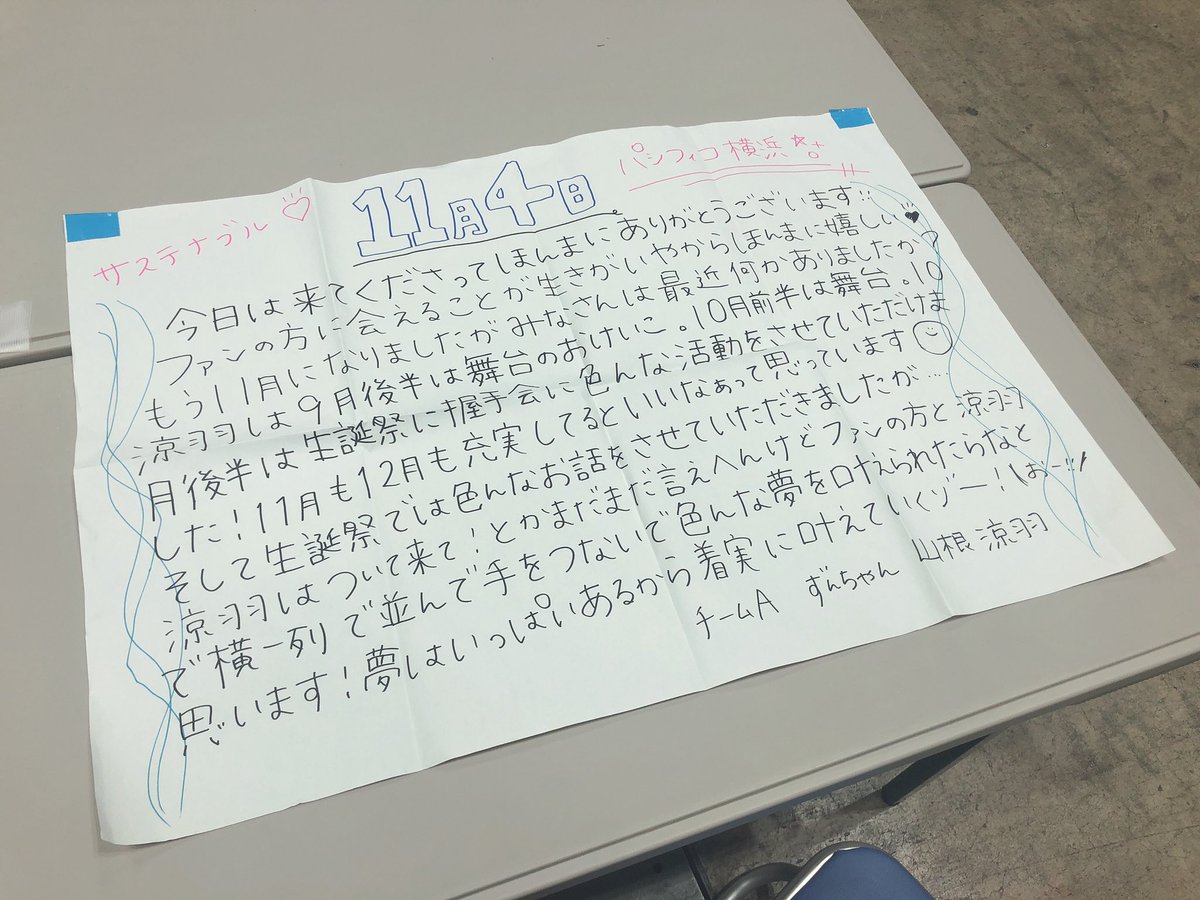 サステナブル♡
11月4日
パシフィコ横浜
今日は来てくださってほんまにありがとうございます!!
ファンの方に会えることが生きがいやからほんまに嬉しい♥
もう11月になりましたがみなさんは最近何かありましたか?
涼羽は9月後半は舞台のおけいこ。10月前半は舞台。10
月後半は生誕祭に握手会に色んな活動をさせていただけま
した!11月も12月も充実してるといいなぁって思っています
そして生誕祭では色んなお話をさせていただきましたが…
涼羽はついて来て!とかまだまだ言えへんけどファンの方と涼羽
で横一列で並んで手をつないで色んな夢を叶えられたらなと
思います!夢はいっぱいあるから着実に叶えていくゾー!はぁーい!
チームA ずんちゃん 山根涼羽